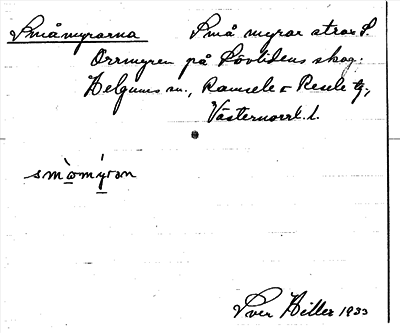 Småmyrarna Små myrar strax S.
Orrmyren på Lövlidens skog.
Helgums sn., Ramsele o Resele tg.,
Västernorrl. l.
smὼmýran
Yver Hiller 1933